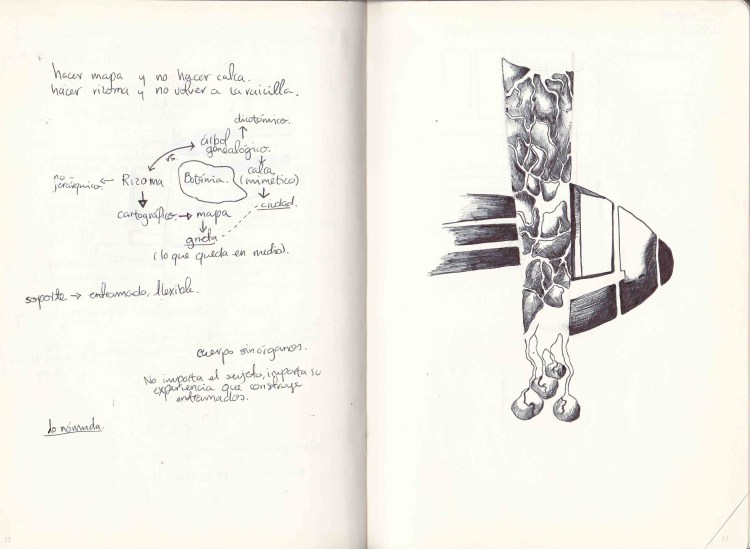 hacer mapa y no hacer calca.
hacer rizoma y no volver a la raicilla.
dicotómico.
árbol
genealógico.
vs.
no-
jerárquico
Rizoma
Botánica.
calca
(mimético)
ciudad.
cartográfico
mapa
grieta
(lo que queda en medio).
soporte → entramado, flexible.
cuerpo sin órganos.
No importa el sujeto, importa su
experiencia que construye
entramados.
lo nómada.